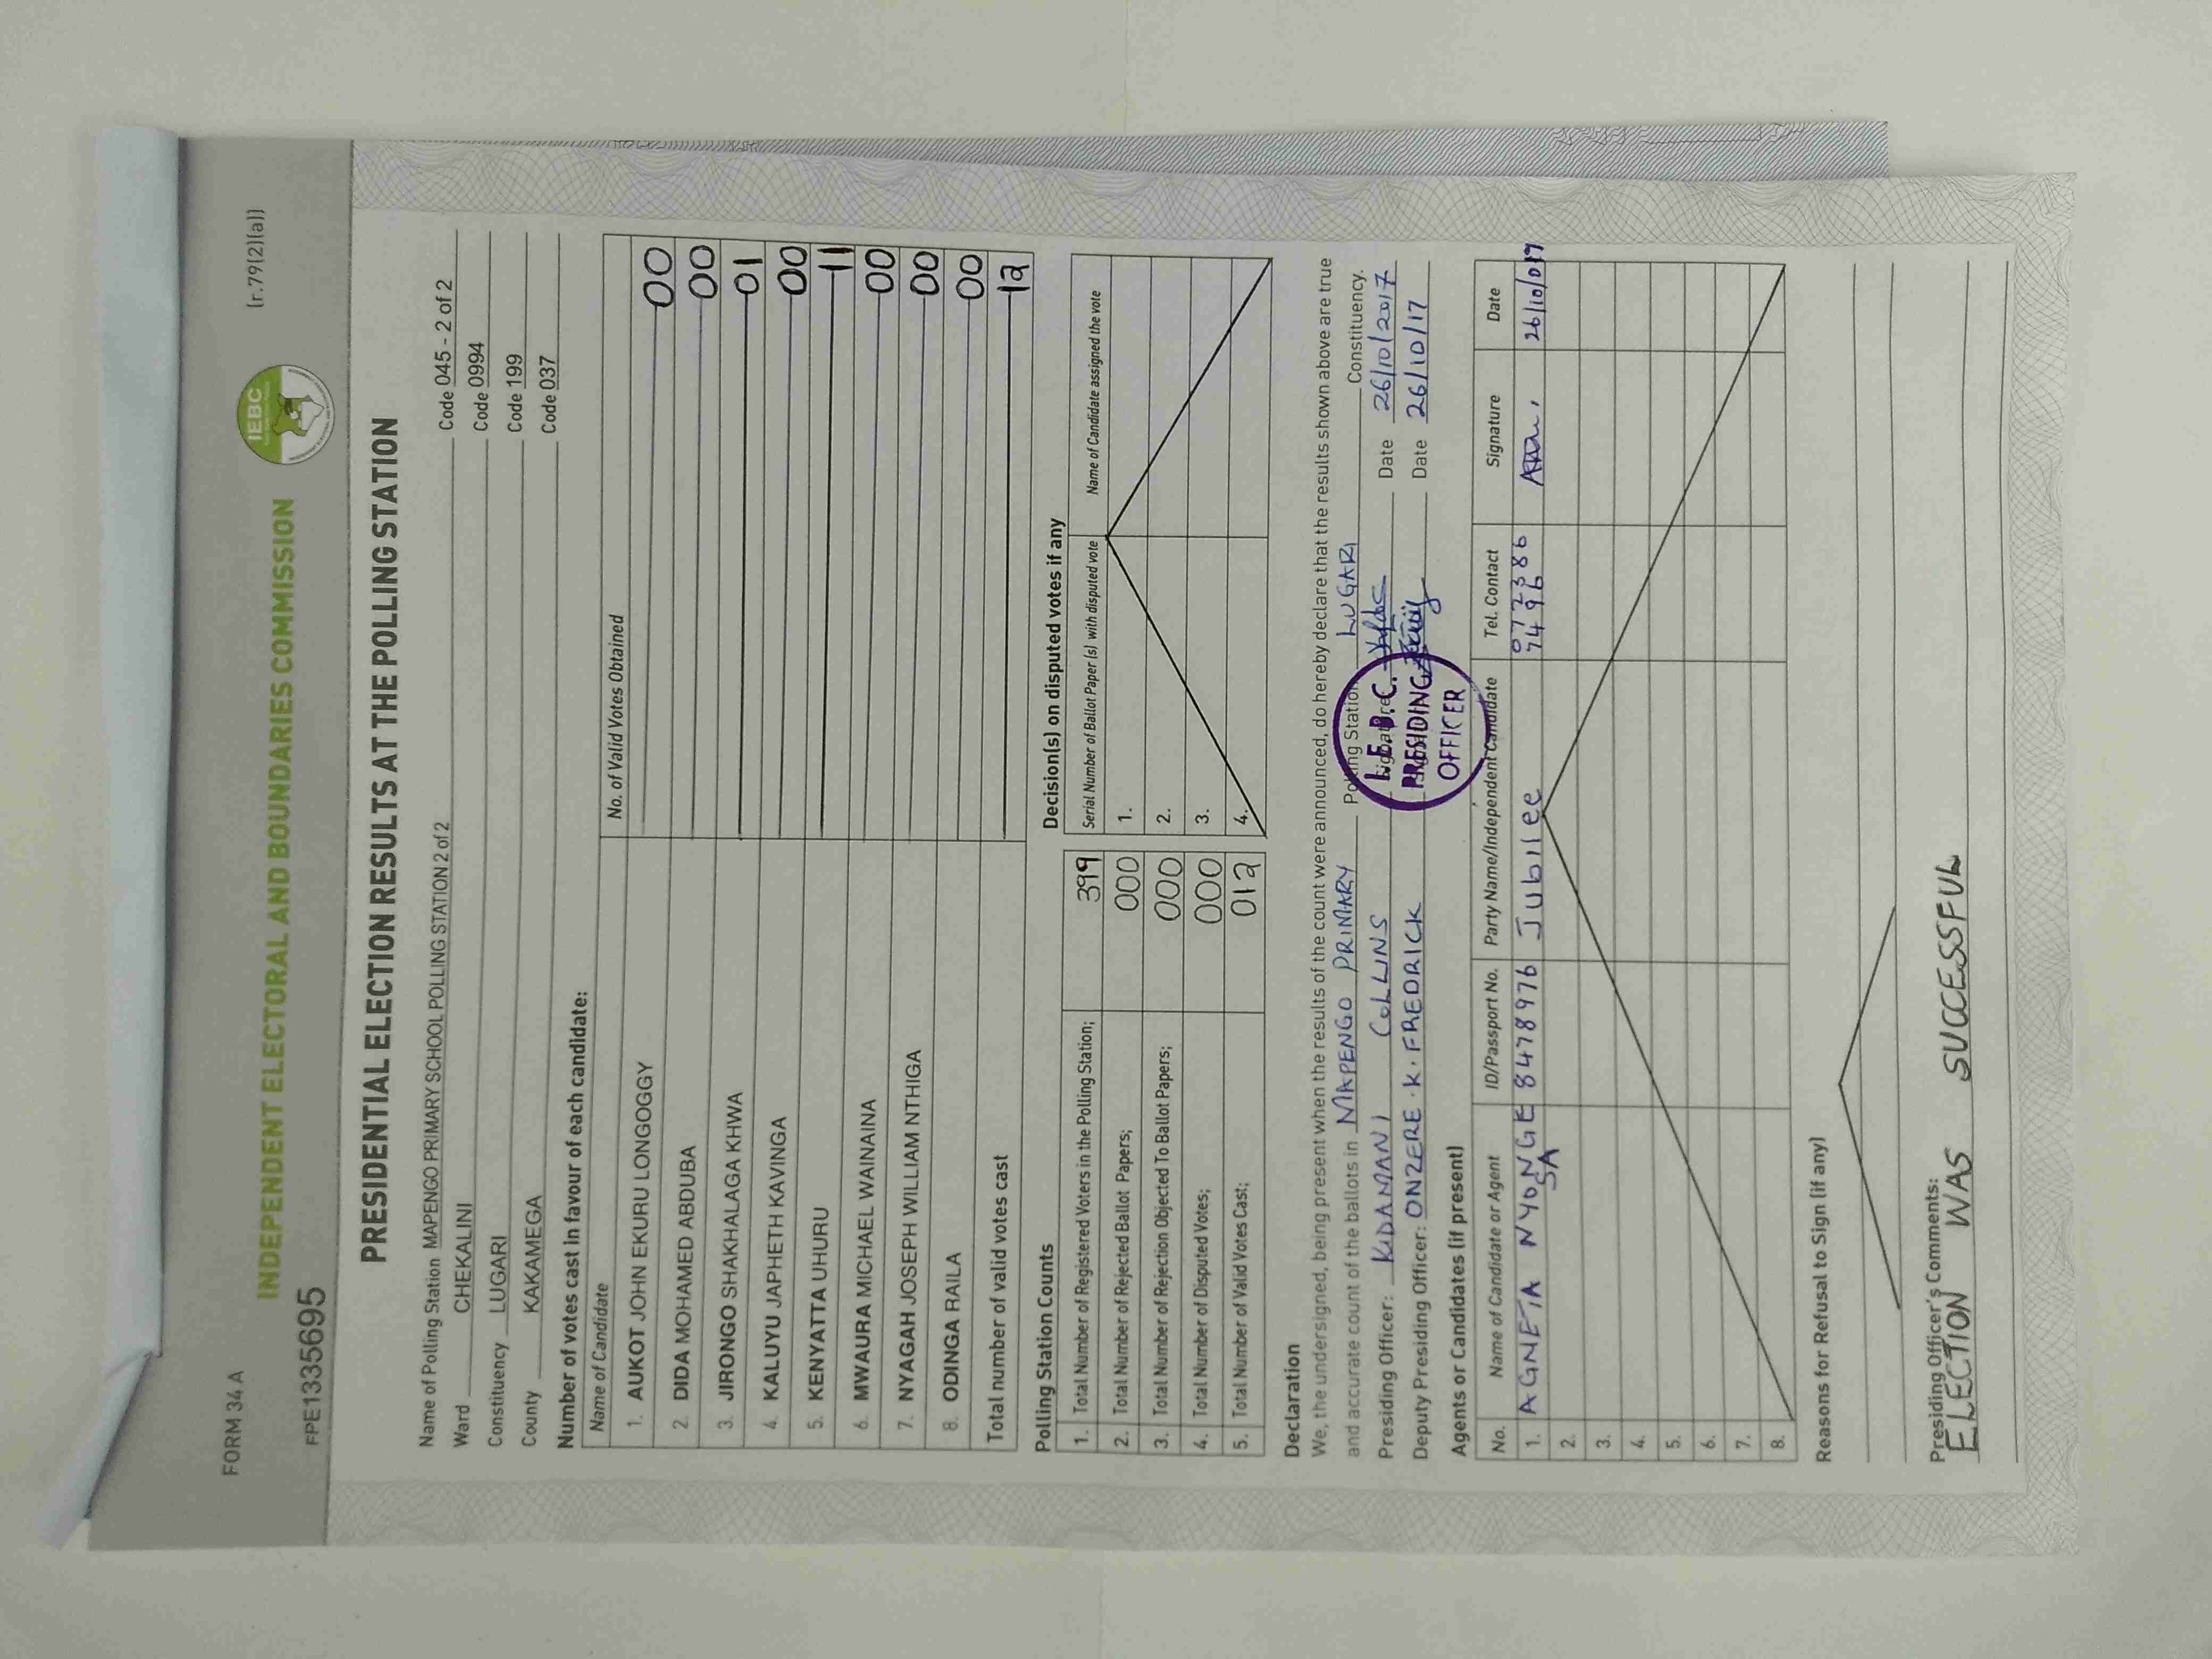 FORM 34 A
(r.79(2)(a))
IEBC
INDEPENDENT ELECTORAL AND BOUNDARIES COMMISSION
FPE1335695
PRESIDENTIAL ELECTION RESULTS AT THE POLLING STATION
Name of Polling Station MAPENGO PRIMARY SCHOOL POLLING STATION 2 of 2 Code 045 - 2 of 2
Ward CHEKALINI Code 0994
Constituency LUGARI Code 199
County KAKAMEGA Code 037
Number of votes cast in favour of each candidate:
Name of Candidate No. of Valid Votes Obtained
1. AUKOT JOHN EKURU LONGOGGY 00
2. DIDA MOHAMED ABDUBA 00
3. JIRONGO SHAKHALAGA KHWA 01
4. KALUYU JAPHETH KAVINGA 00
5. KENYATTA UHURU 11
6. MWAURA MICHAEL WAINAINA 00
7. NYAGAH JOSEPH WILLIAM NTHIGA 00
8. ODINGA RAILA 00
Total number of valid votes cast 12
Polling Station Counts
1. Total Number of Registered Voters in the Polling Station; 399
2. Total Number of Rejected Ballot Papers; 000
3. Total Number of Rejection Objected To Ballot Papers; 000
4. Total Number of Disputed Votes; 000
5. Total Number of Valid Votes Cast; 012
Decision(s) on disputed votes if any
Serial Number of Ballot Paper (s) with disputed vote Name of Candidate assigned the vote
1.
2.
3.
4.
Declaration
We, the undersigned, being present when the results of the count were announced, do hereby declare that the results shown above are true
and accurate count of the ballots in MAPENGO PRIMARY Polling Station LUGARI Constituency.
Presiding Officer: KIDAMANI COLLINS Signature Date 26/10/2017
Deputy Presiding Officer: ONZERE . K. FREDRICK Date 26/10/17
I.E.B.C.
PRESIDING
OFFICER
Agents or Candidates (if present)
No. Name of Candidate or Agent ID/Passport No. Party Name/Independent Candidate Tel. Contact Signature Date
1. AGNETA NYONGESA 8478976 Jubilee 26/10/017
2.
3.
4.
5.
6.
7.
8.
Reasons for Refusal to Sign (if any)
Presiding Officer's Comments:
ELECTION WAS SUCCESSFUL